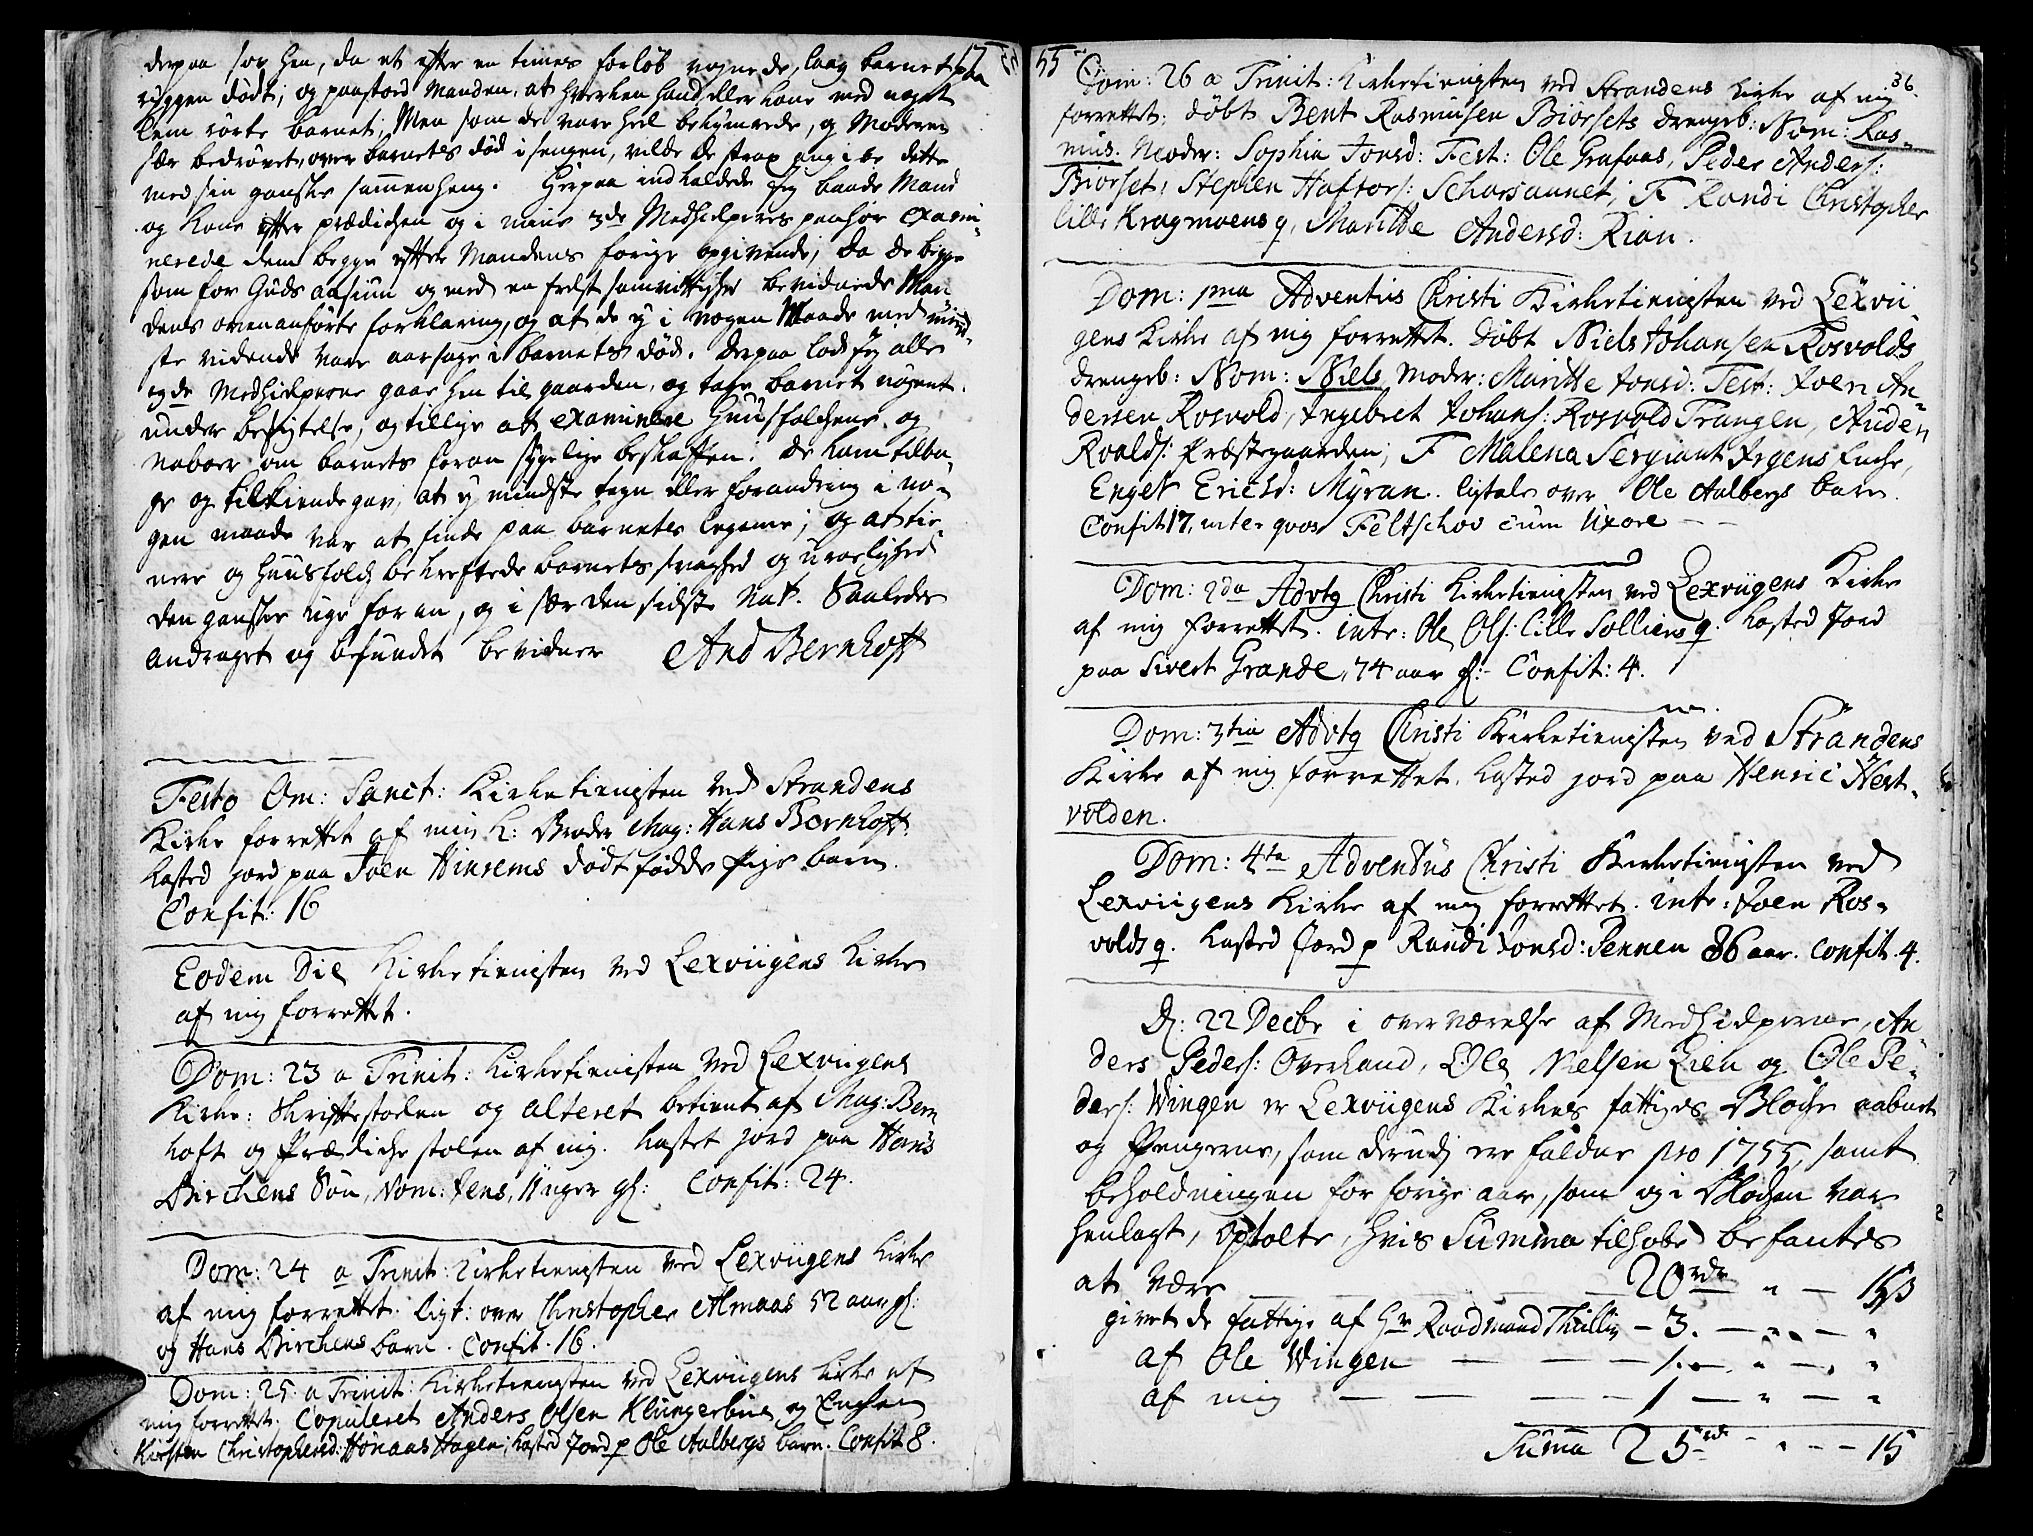 17
derpaa sov hen, da et efter en times forløb vognede, laag barnet paa
ryggen dødt; og paastod Manden, at hverken hand eller kone med noget
lem rørte barnet; Men som de vare heel bekymrede, og Moderen
sær bedrøvet over barnets død i sengen, vilde de strax angive dette
med sin gandske sammenheng. Herpaa indkaldede Jeg baade Mand
og kone efter prædichen og i mine 3de Medhielperes paahør exami-
nerede dem begge efter Mandens forige opgivende; da de begge
som for Guds aasiun og med en frelst samvittighed bevidnede Man
dens ovenanførte forklaring, og at de ey i nogen Maade med mind-
ste vidende vare aarsage i barnets død. Derpaa lod Jeg alle
og de Medhielperne gaae hen til gaarden, og tage barnet nøgent
under besigtelse, og tillige at examinere Huusfolchene og
naboer om barnets foran sygelige beskaffen: De kom tilba-
ge og tilkiendegav, at ey mindste tegn eller forandring i no-
gen maade var at finde paa barnetes legeme; og at tie
nere og huusfolch bekreftede barnets svaghed og uroelighed
den ganske uge foran, og i sær den sidste Nat. Saaledes
andraget og befundet bevidner And Bernhoft
Festo Om: Sanct: Kirketienisten ved Strandens
Kirke forrettet af min k: Broder Mag: Hans Bernhoft.
Kasted jord paa Joen Hinsems dødfødde Pige barn.
Confit: 16
Eodem Die Kirketienisten ved Lexviigens Kirke
af mig forrettet.
Dom: 23 a Trinit: Kirketienisten ved Lexviigens
Kirke: Skriftestolen og alteret betient af Mag: Bern
hoft og Prædiche stolen af mig. Kastet jord paa Hans
Birchens Søn, Nom: Jens, Uger gl: Confit: 24.
Dom: 24 a Trinit: Kirketienisten ved Lexviigens Kirke
af mig forrettet. ligt: over Christopher Almaas 52 aar gl:
og Hans Birchens barn. Confit. 16.
Dom: 25 a Trinit: Kirketienisten ved Lexviigens Kirke af
mig forrettet. Copuleret Anders Olsen Klungerbue og Enchen
Kirsten Christophersd: Hønaas Hagen; kasted Jord p Ole Aalbergs barn. Confit 8.
55
36.
Dom: 26 a Trinit: Kirketienisten ved Strandens Kirke af mig
forrettet. døbt Bent Rasmusen Biørsets drengeb: Nom: Ras-
mus. Moder: Sophia Jonsd: Test: Ole Grafaas, Peder Anders:
Biørset, Stephen Haftors: Scharsaunet; F Randi Christopher
lille Kragmoens q, Maritte Andersd: Rian.
Dom: 1ma Adventus Christi Kirketienisten ved Lexvii
gens Kirke af mig forrettet. døbt Niels Johansen Rosvolds
drengeb: Nom: Niels Moder: Maritte Jonsd: Test: Joen An-
dersen Rosvold, Ingebret Johans: Rosvold Trangen, Auden
Roalds: Præstegaarden; F Malena Sergiant Irgens Enche,
Engel Erichsd: Myran. ligtale over Ole Aalbergs barn.
Confit 17, inter qvos Feltschov cum Uxore
Dom: 2da Advtq Christi Kirketienisten ved Lexviigens Kirke
af mig forrettet. intr: Ole Ols: lille Solliens q. Kasted Jord
paa Sivert Grande, 74 aar gl: Confit: 4.
Dom: 3tia Advtq Christi Kirketienisten ved Strandens
Kirke af mig forrettet. Kasted jord paa Henric Hest-
volden.
Dom: 4ta Adventus Christi Kirketienisten ved
Lexviigens Kirke af mig forrettet. intr: Joen Ros-
volds q. Kasted Jord p Randi Jonsd: Pennen 86 aar. Confit. 4.
D: 22 Decbr i overværelse af Medhielperne, An
ders Peders: Overland, Ole Nielsen Lien og Ole Pe-
ders: Wingen er Lexviigens Kirkes fattiges Bloche aabnet
og Pengerne, som derudi ere faldne pro 1755, samt
beholdningen for forige aar, som og i Blochen var
henlagt, optalte, hvis Summa tilhobe befantes
at være 20 rdr " — 15 β
givet de fattige af Hr Raadmand Thilling — 3. — " — "
af Ole Wingen — — — 1. — " — "
af mig — — — 1 — " — "
Summa 25 rdr — " — 15